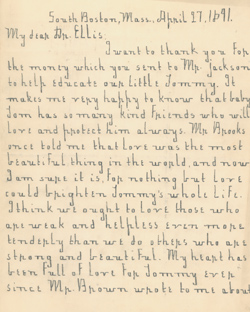 South Boston, Mass., April 27, 1891.
My dear Dr. Ellis.
I want to thank you for
the money which you sent to Mr. Jackson
to help educate our little Tommy. It
makes me very happy to know that baby
Tom has so many kind friends who will
love and protect him always. Mr. Brooks
once told me that love was the most
beautiful thing in the world, and now
I am sure it is, for nothing but love
could brighten Tommy's whole life.
I think we ought to love those who
are weak and helpless even more
tenderly than we do others who are
strong and beautiful. My heart has
been full of love for Tommy ever
since Mr. Brown wrote to me about